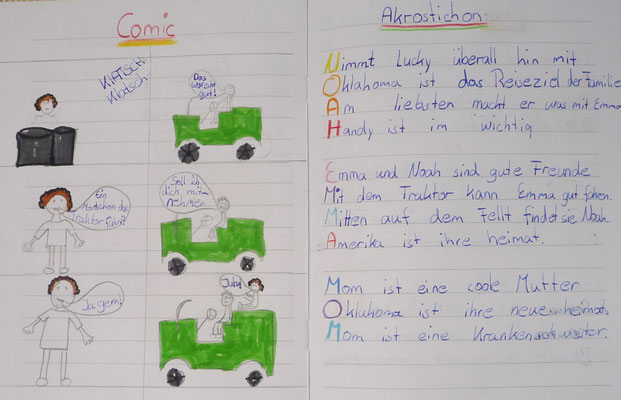 Comic
KLATSCH
Klatsch
Das
war aber
gut!
Ein
Mädchen das
Traktor fährt
Soll ich
dich mit-
nehmen
Ja gern!
Juhu
Akrostichon
Nimmt Lucky überall hin mit
Oklahoma ist das Reiseziel der Familie
Am liebsten macht er was mit Emma
Handy ist im wichtig
Emma und Noah sind gute Freunde
Mit dem Traktor kann Emma gut fahren.
Mitten auf dem Fellt findet sie Noah.
Amerika ist ihre heimat.
Mom ist eine coole Mutter
Oklahoma ist ihre neue heimat.
Mom ist eine Krankenschwester.